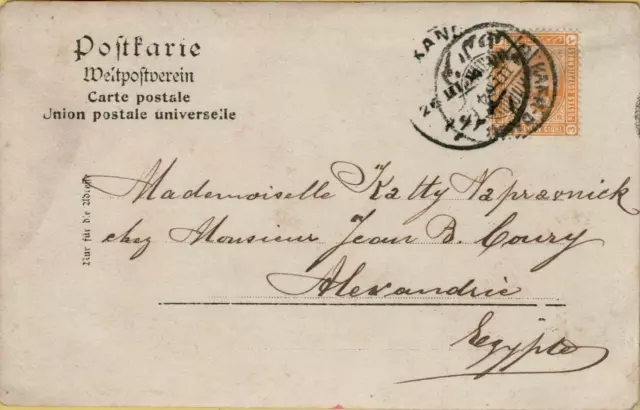 Postkarie
Weltpostverein
Carte postale
Union postale universelle
Nur für die Adresse
KAN
3 POSTES EGYPTIENNES 3
Mademoiselle Katty Napravnick
chez Monsieur Jean B. Coury
Alexandrie
Egypte